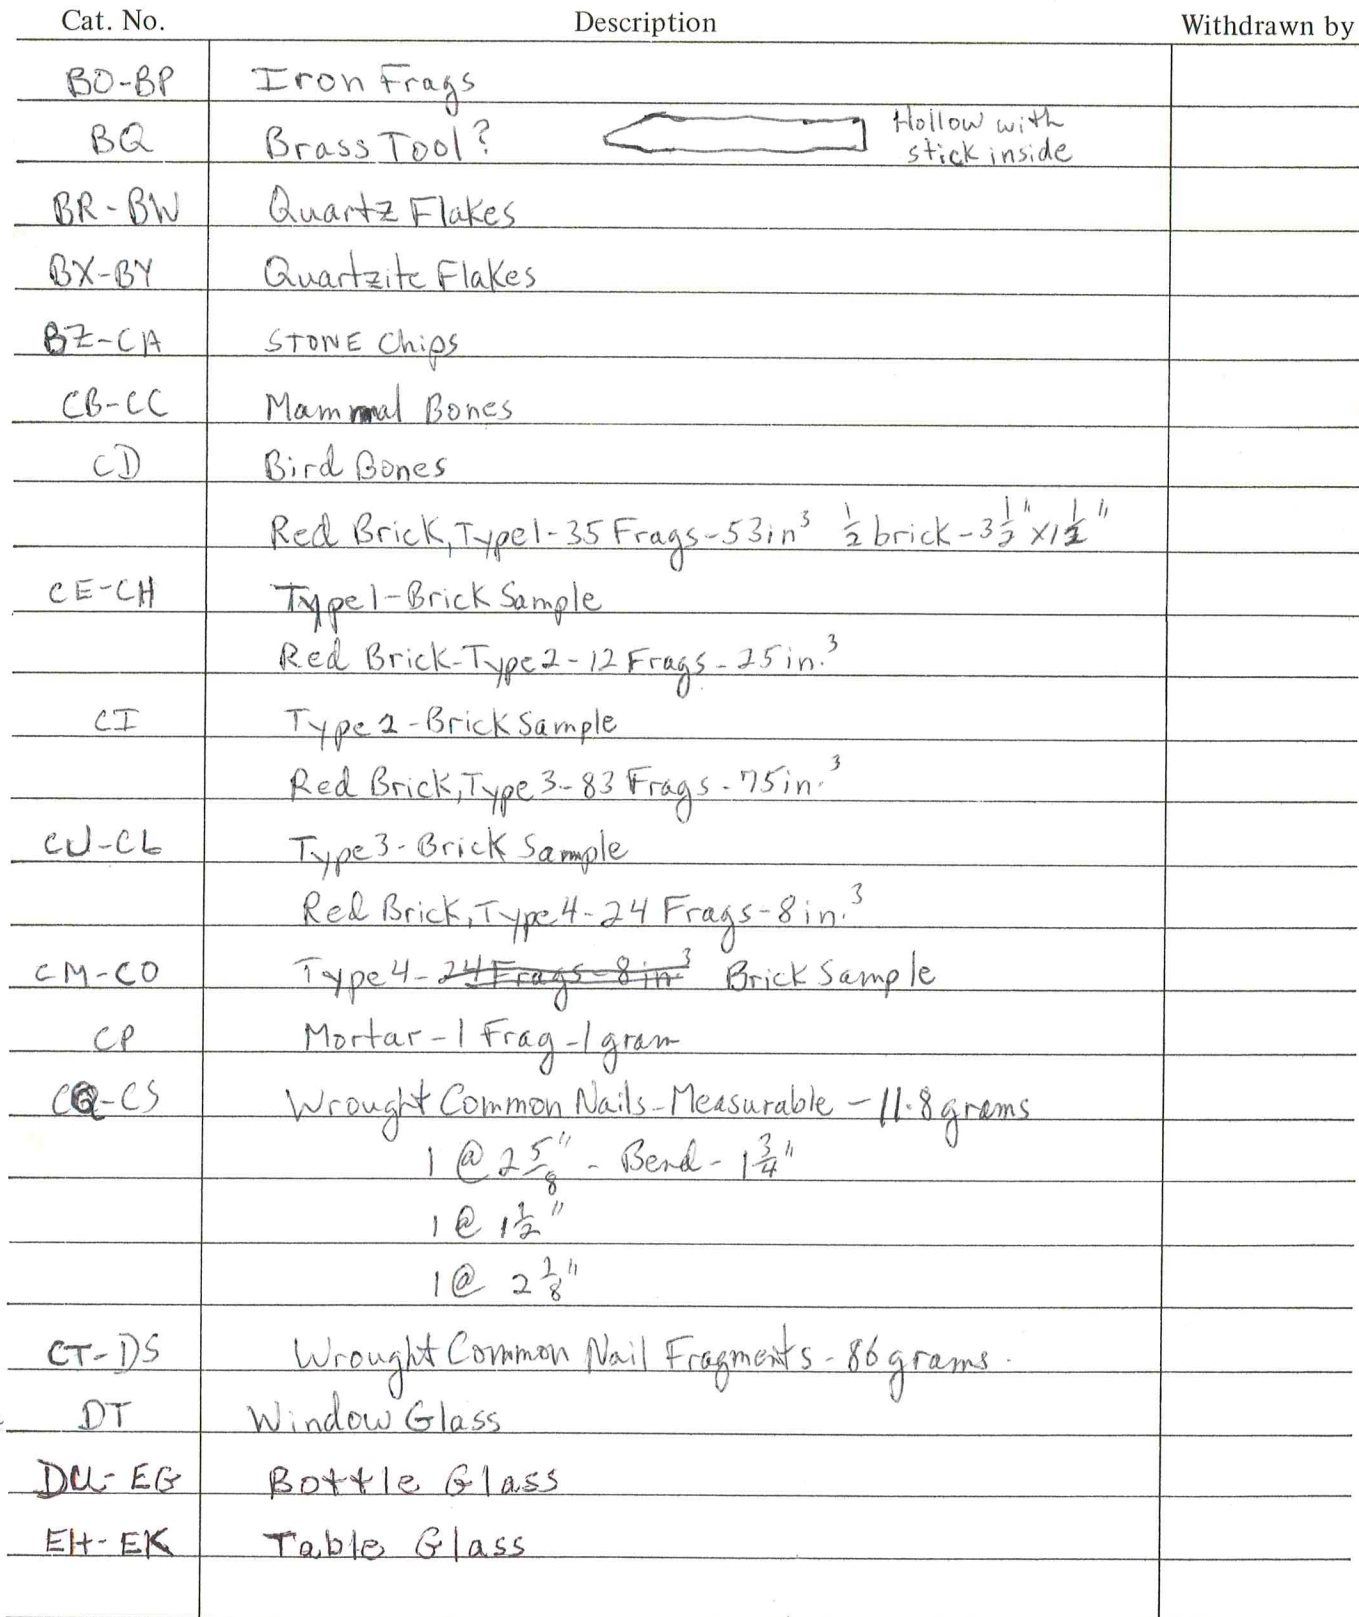 Cat. No. Description Withdrawn by
BO-BP Iron Frags
BQ Brass Tool? Hollow with
stick inside
BR-BW Quartz Flakes
BX-BY Quartzite Flakes
BZ-CA STONE Chips
CB-CC Mammal Bones
CD Bird Bones
Red Brick, Type1-35 Frags-53in³ ½ brick-3½"x1½"
CE-CH Type1-Brick Sample
Red Brick-Type2-12 Frags-25in.³
CI Type2-Brick Sample
Red Brick, Type3-83 Frags-75in.³
CJ-CL Type3-Brick Sample
Red Brick, Type4-24 Frags-8in.³
CM-CO Type4-24 Frags-8in³ Brick Sample
CP Mortar-1 Frag-1gram
CQ-CS Wrought Common Nails-Measurable-11.8grams
1 @ 2 5/8" - Bend - 1¾"
1 @ 1½"
1 @ 2 1/8"
CT-DS Wrought Common Nail Fragments-86grams.
DT Window Glass
DU-EG Bottle Glass
EH-EK Table Glass